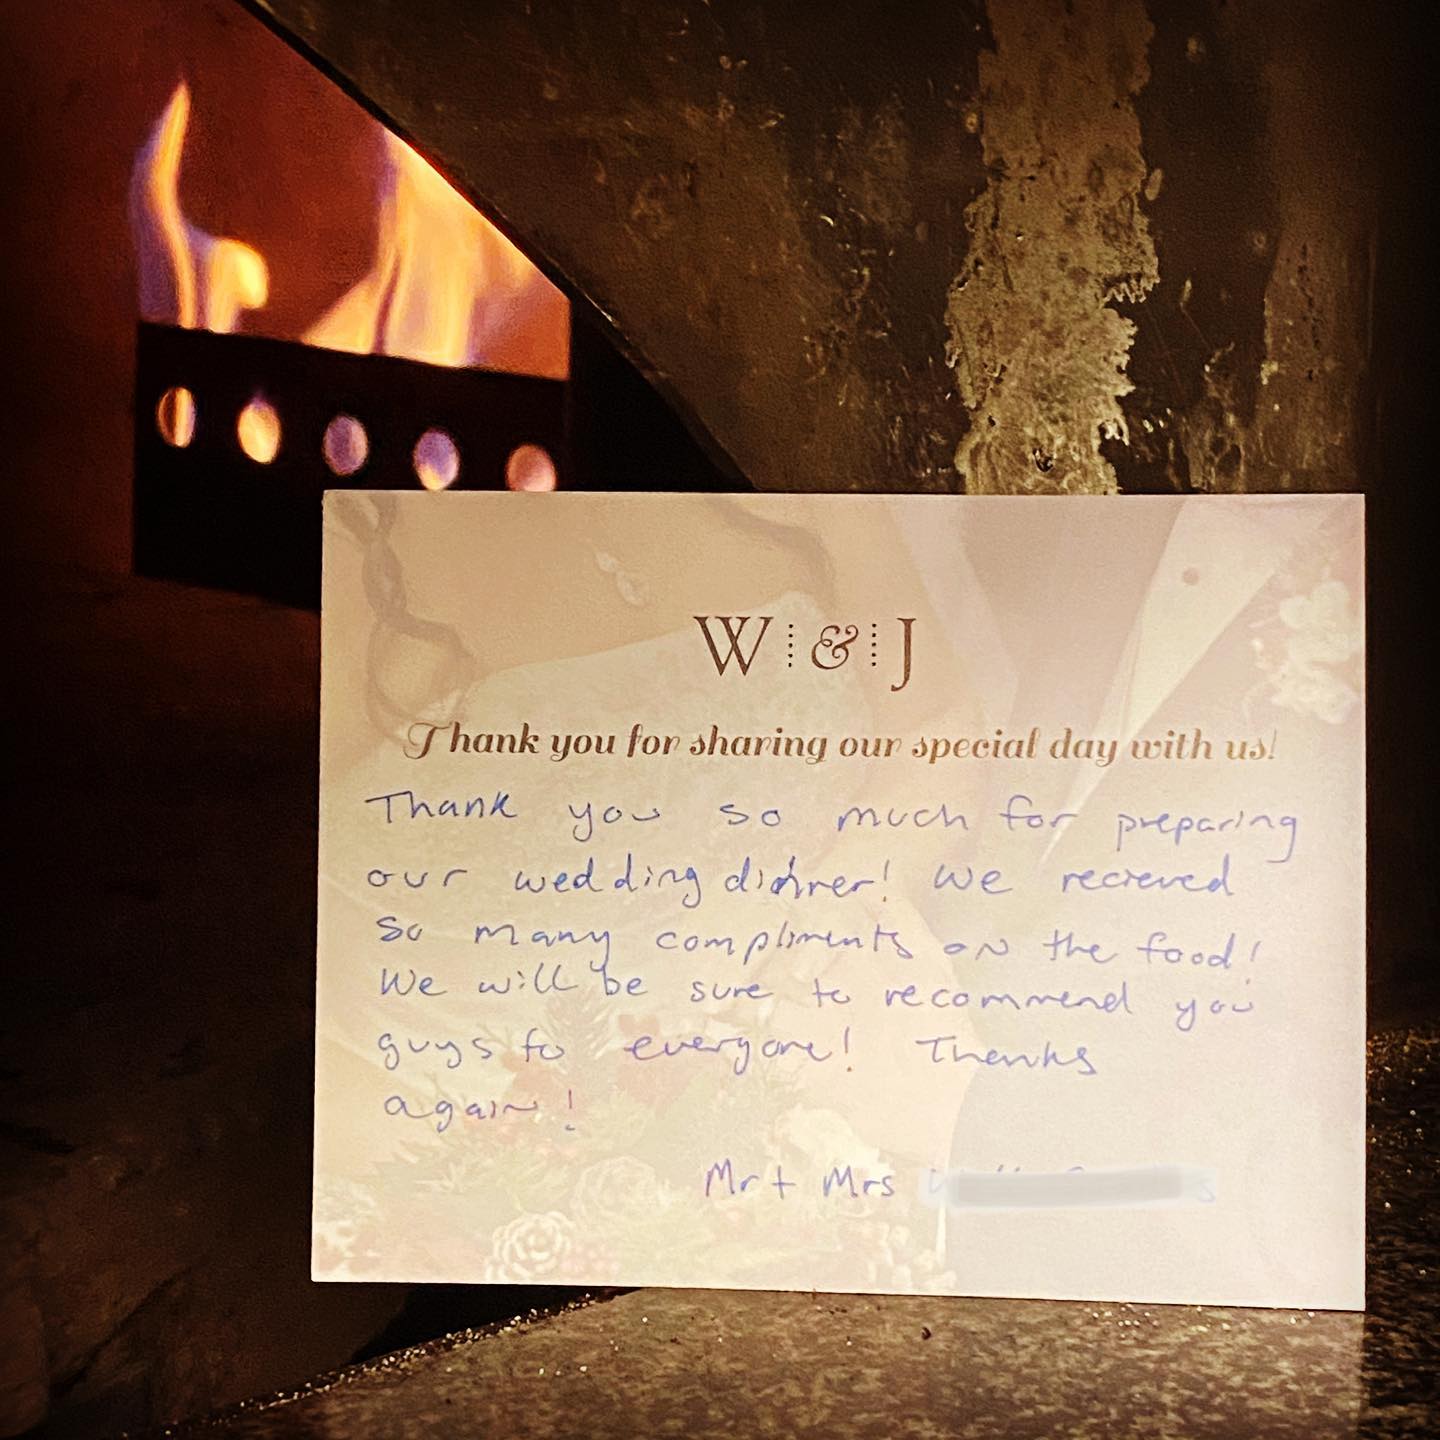 W & J
Thank you for sharing our special day with us!
Thank you so much for preparing
our wedding dinner! We recieved
so many compliments on the food!
We will be sure to recommend you
guys to everyone! Thanks
again!
Mr + Mrs